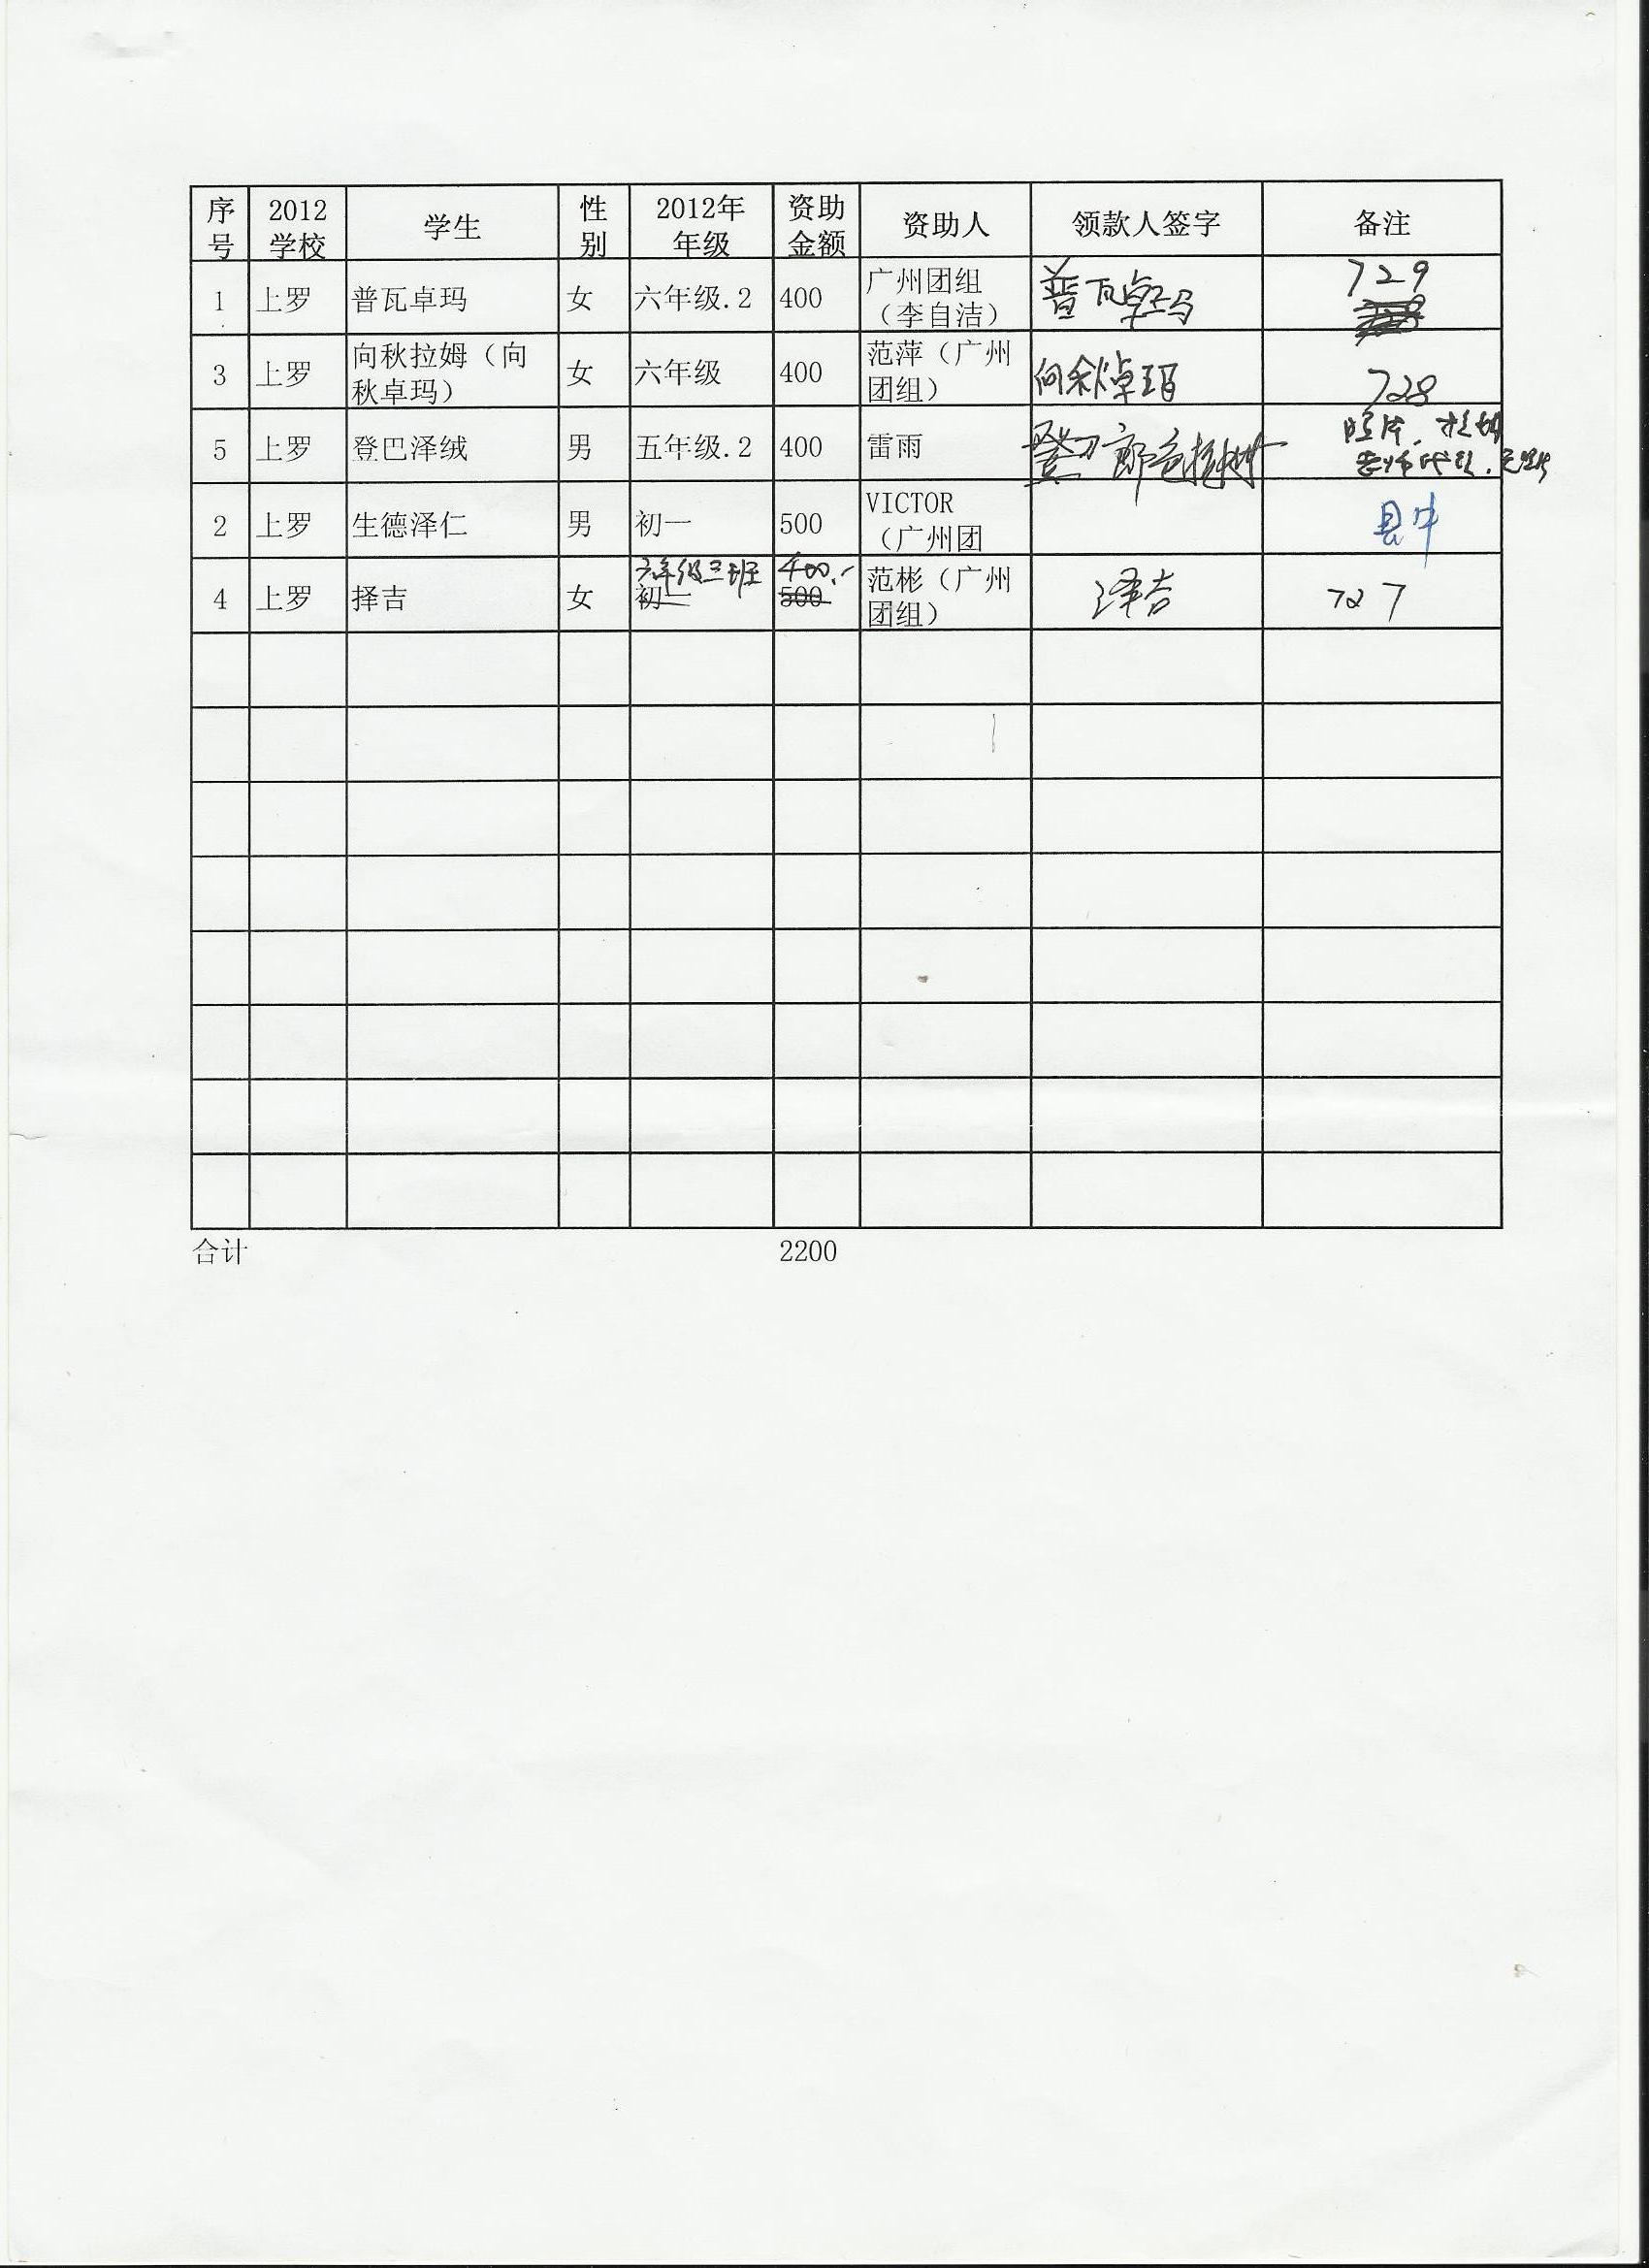 序号 2012学校 学生 性别 2012年年级 资助金额 资助人 领款人签字 备注
1 上罗 普瓦卓玛 女 六年级.2 400 广州团组（李自洁） 普瓦卓玛 729
3 上罗 向秋拉姆（向秋卓玛） 女 六年级 400 范萍（广州团组） 向秋卓玛 728
5 上罗 登巴泽绒 男 五年级.2 400 雷雨 照片.
老师代领.
2 上罗 生德泽仁 男 初一 500 VICTOR（广州团 县中
4 上罗 择吉 女 初一 六年级三班 500 400.- 范彬（广州团组） 泽吉 727
合计 2200